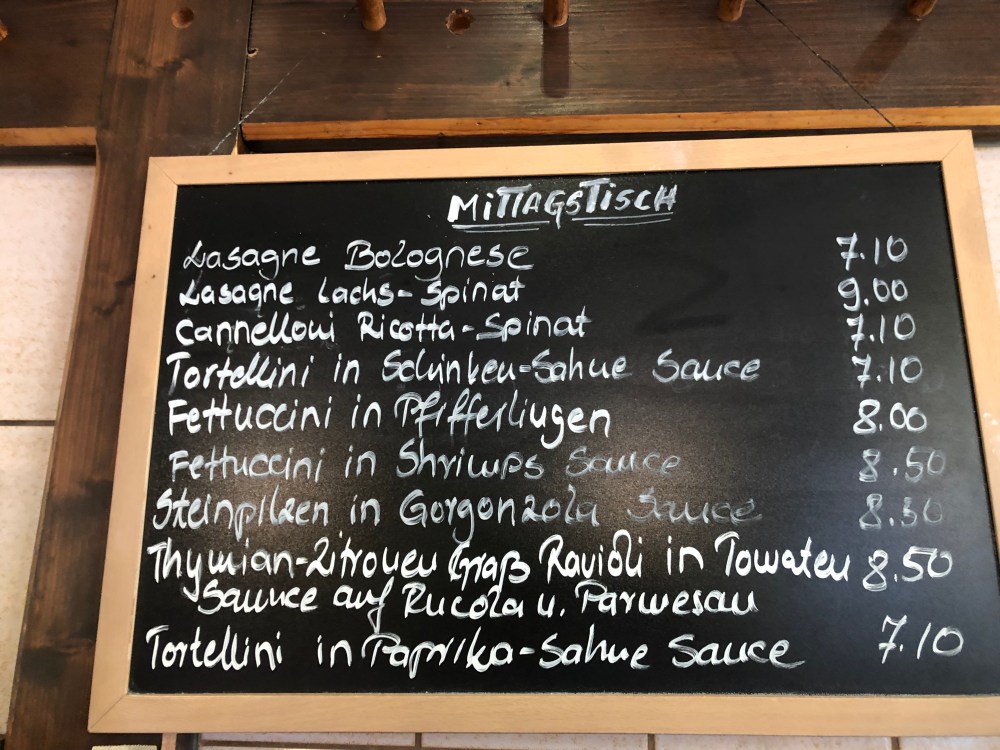 MITTAGSTISCH
Lasagne Bolognese 7.10
Lasagne Lachs-Spinat 9.00
Cannelloni Ricotta-Spinat 7.10
Tortellini in Schinken-Sahne Sauce 7.10
Fettuccini in Pfifferlingen 8.00
Fettuccini in Shrimps Sauce 8.50
Steinpilzen in Gorgonzola Sauce 8.50
Thymian-Zitronen Graß Ravioli in Tomaten 8.50
Saunce auf Rucola u. Parmesan
Tortellini in Paprika-Sahne Sauce 7.10